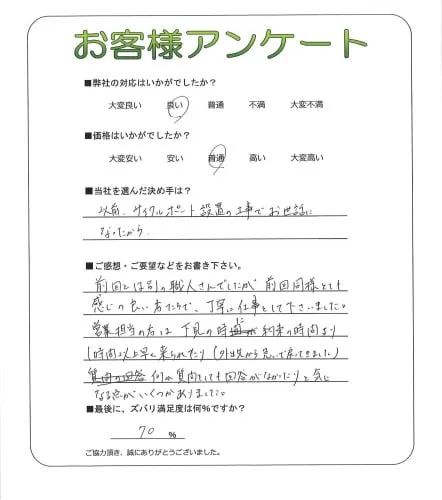 お客様アンケート
■弊社の対応はいかがでしたか？
大変良い 良い 普通 不満 大変不満
■価格はいかがでしたか？
大変安い 安い 普通 高い 大変高い
■当社を選んだ決め手は？
以前、サイクルポート設置の工事でお世話に
なったから
■ご感想・ご要望などをお書き下さい。
前回とは別の職人さんでしたが前回同様とても
感じの良い方たちで、丁寧に仕事をして下さいました。
営業担当の方は下見の時に約束の時間より
1時間以上早く来られたり(外出から急いで戻ってきました)
何か質問をしても回答がなかったりと気に
なる点がいくつかありました。
■最後に、ズバリ満足度は何％ですか？
70 %
ご協力頂き、誠にありがとうございました。